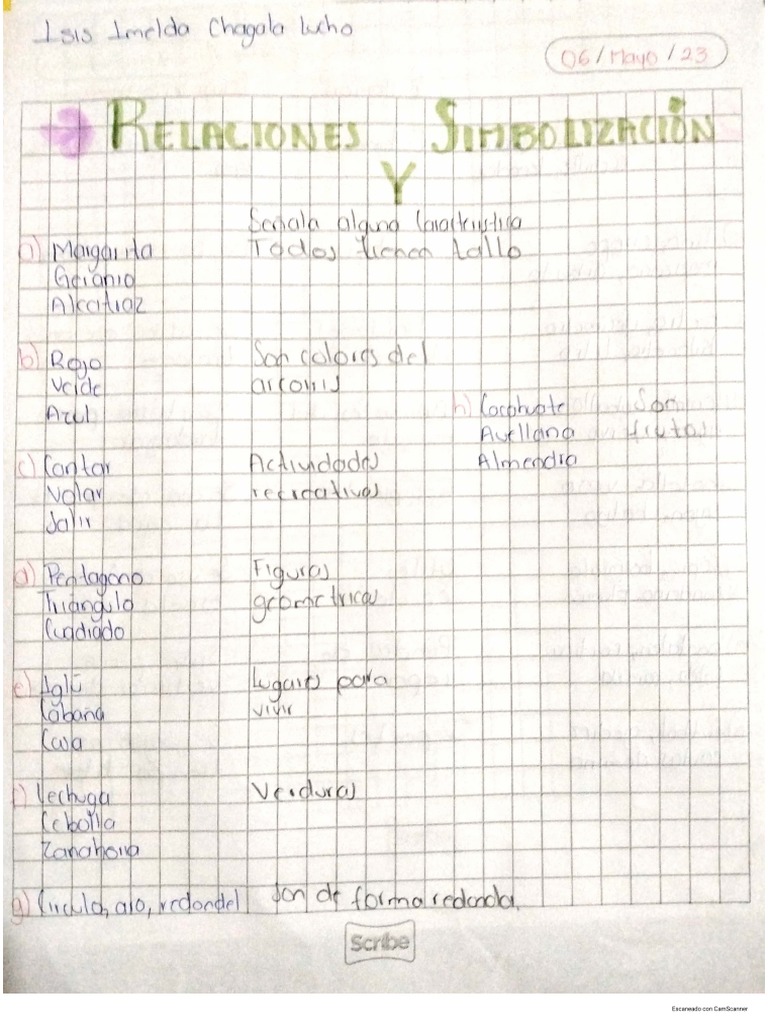 Isis Imelda Chagala Lucho
06/Mayo/23
RELACIONES Y SIMBOLIZACIÓN
Señala alguna Característica
a) Margarita Todos tienen tallo
Geranio
Alcatraz
b) Rojo Son colores del
Verde arcoiris
Azul
h) Cacahuate Son
Avellana frutas
Almendra
c) Cantar Actividades
Volar recreativas
Salir
d) Pentagono Figuras
Triángulo geometricas
Cuadrado
e) Iglú Lugares para
Cabaña vivir
Casa
f) Lechuga Verduras
Cebolla
Zanahoria
g) Circulo, aro, redondel Son de forma redonda.
Scribe
Escaneado con CamScanner